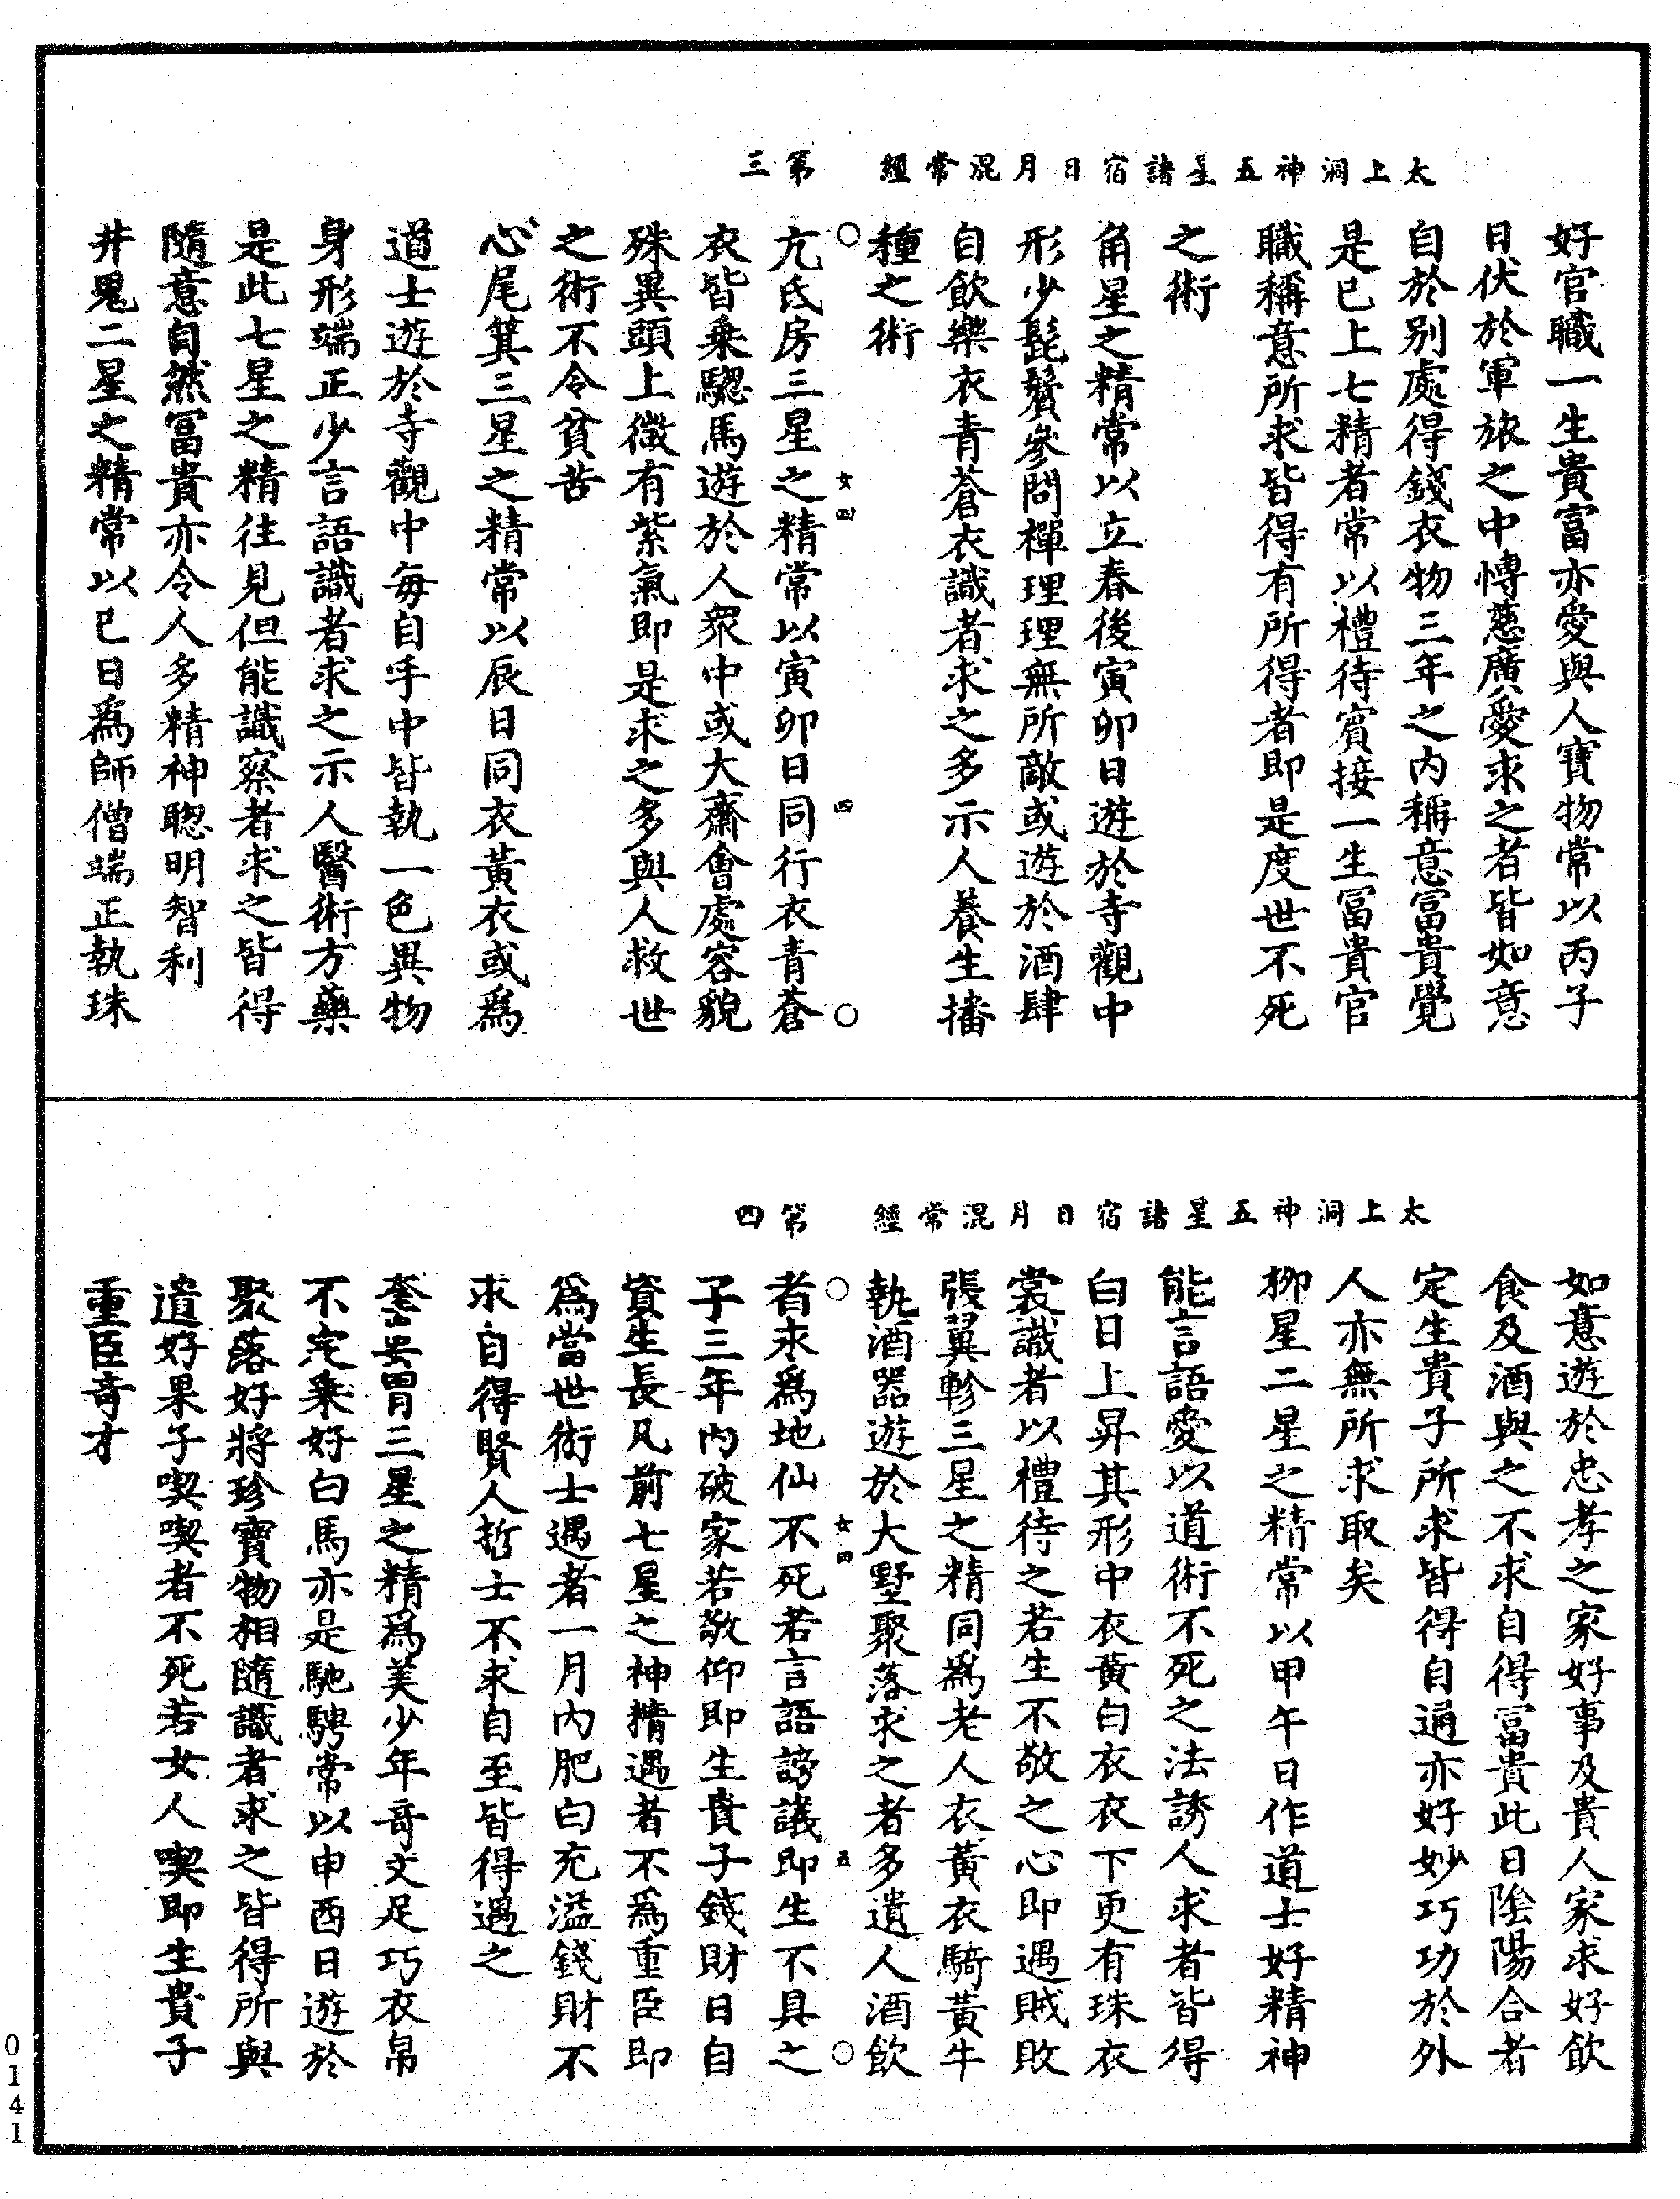 太上洞神五星諸宿日月混常經　第三
好官職一生貴富亦愛與人寶物常以丙子
日伏於軍旅之中慱慈廣愛求之者皆如意
自於别處得錢衣物三年之内稱意冨貴覺
是已上七精者常以禮待賓接一生冨貴官
職稱意所求皆得有所得者即是度世不死
之術
角星之精常以立春後寅卯日遊於寺觀中
形少髭鬢參問襌理理無所敵或遊於酒肆
自飲樂衣青蒼衣識者求之多示人養生播
種之術
亢氐房三星之精常以寅卯日同行衣青蒼
女四
四
衣皆乗騘馬遊於人衆中或大齋會處容貌
殊異頭上微有紫氣即是求之多與人救世
之術不令貧苦
心尾箕三星之精常以辰日同衣黄衣或爲
道士遊於寺觀中毎自手中皆執一色異物
身形端正少言語識者求之示人醫術方藥
是此七星之精往見但能識察者求之皆得
隨意自然冨貴亦令人多精神聦明智利
井鬼二星之精常以巳日爲師僧端正執珠
太上洞神五星諸宿日月混常經　第四
如意遊於忠孝之家好事及貴人家求好飲
食及酒與之不求自得冨貴此日隂陽合者
定生貴子所求皆得自通亦好妙巧功於外
人亦無所求取矣
柳星二星之精常以甲午日作道士好精神
能言語愛以道術不死之法誘人求者皆得
白日上昇其形中衣黄白衣衣下更有珠衣
裳識者以禮待之若生不敬之心即遇賊敗
張翼軫三星之精同爲老人衣黄衣騎黄牛
執酒器遊於大墅聚落求之者多遺人酒飲
者求爲地仙不死若言語謗議即生不具之
女四
五
子三年内破家若敬仰即生貴子錢財日自
資生長凡前七星之神精遇者不爲重臣即
爲當世術士遇者一月内肥白充溢錢財不
求自得賢人哲士不求自至皆得遇之
奎婁胃三星之精爲美少年奇文足巧衣帛
不定乗好白馬亦是馳騁常以申酉日遊於
聚落好將珍寶物相隨識者求之皆得所與
遺好果子喫喫者不死若女人喫即生貴子
重臣奇才
0141